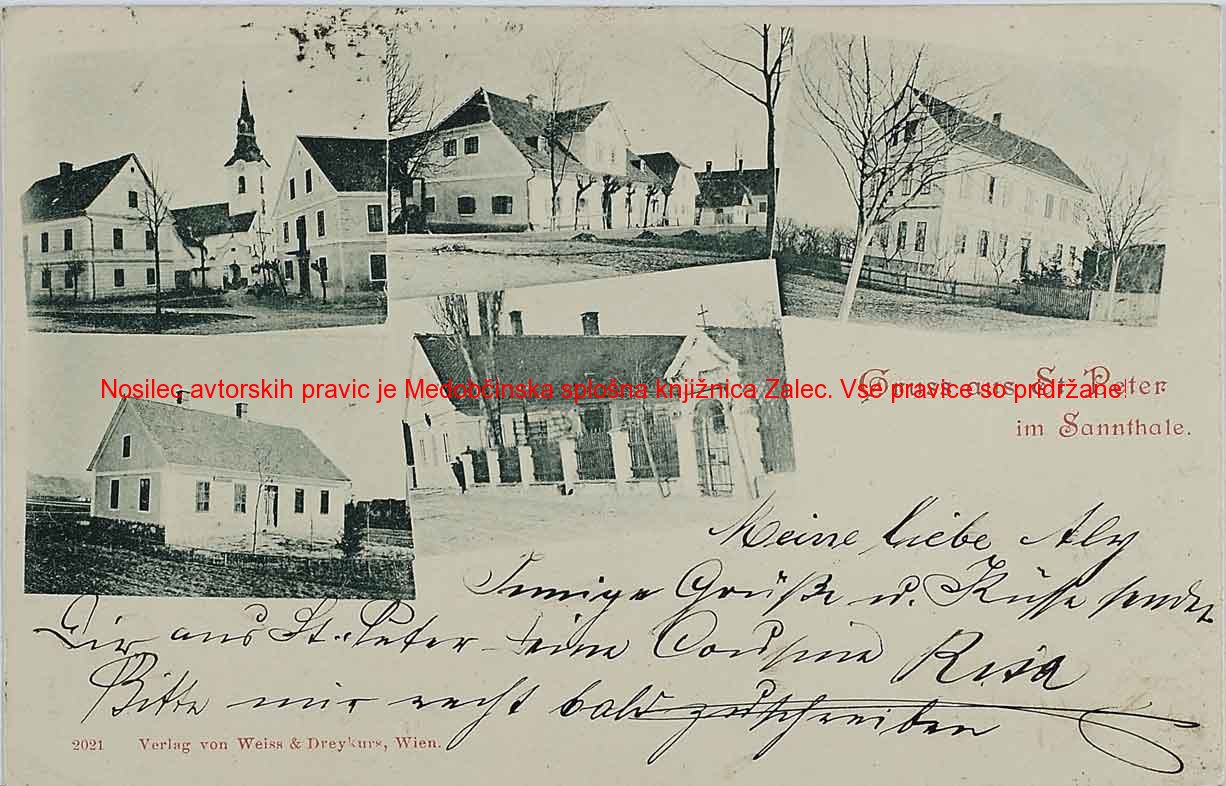 Nosilec avtorskih pravic je Medobčinska splošna knjižnica Zalec. Vse pravice so pridržane!
Gruss aus St. Peter
im Sannthale.
Meine liebe Aly
Innige Grüße u. Küsse sendet
Dir aus St. Peter deine Cousine Resa
Bitte mir recht bald zu schreiben
2021 Verlag von Weiss & Dreykurs, Wien.